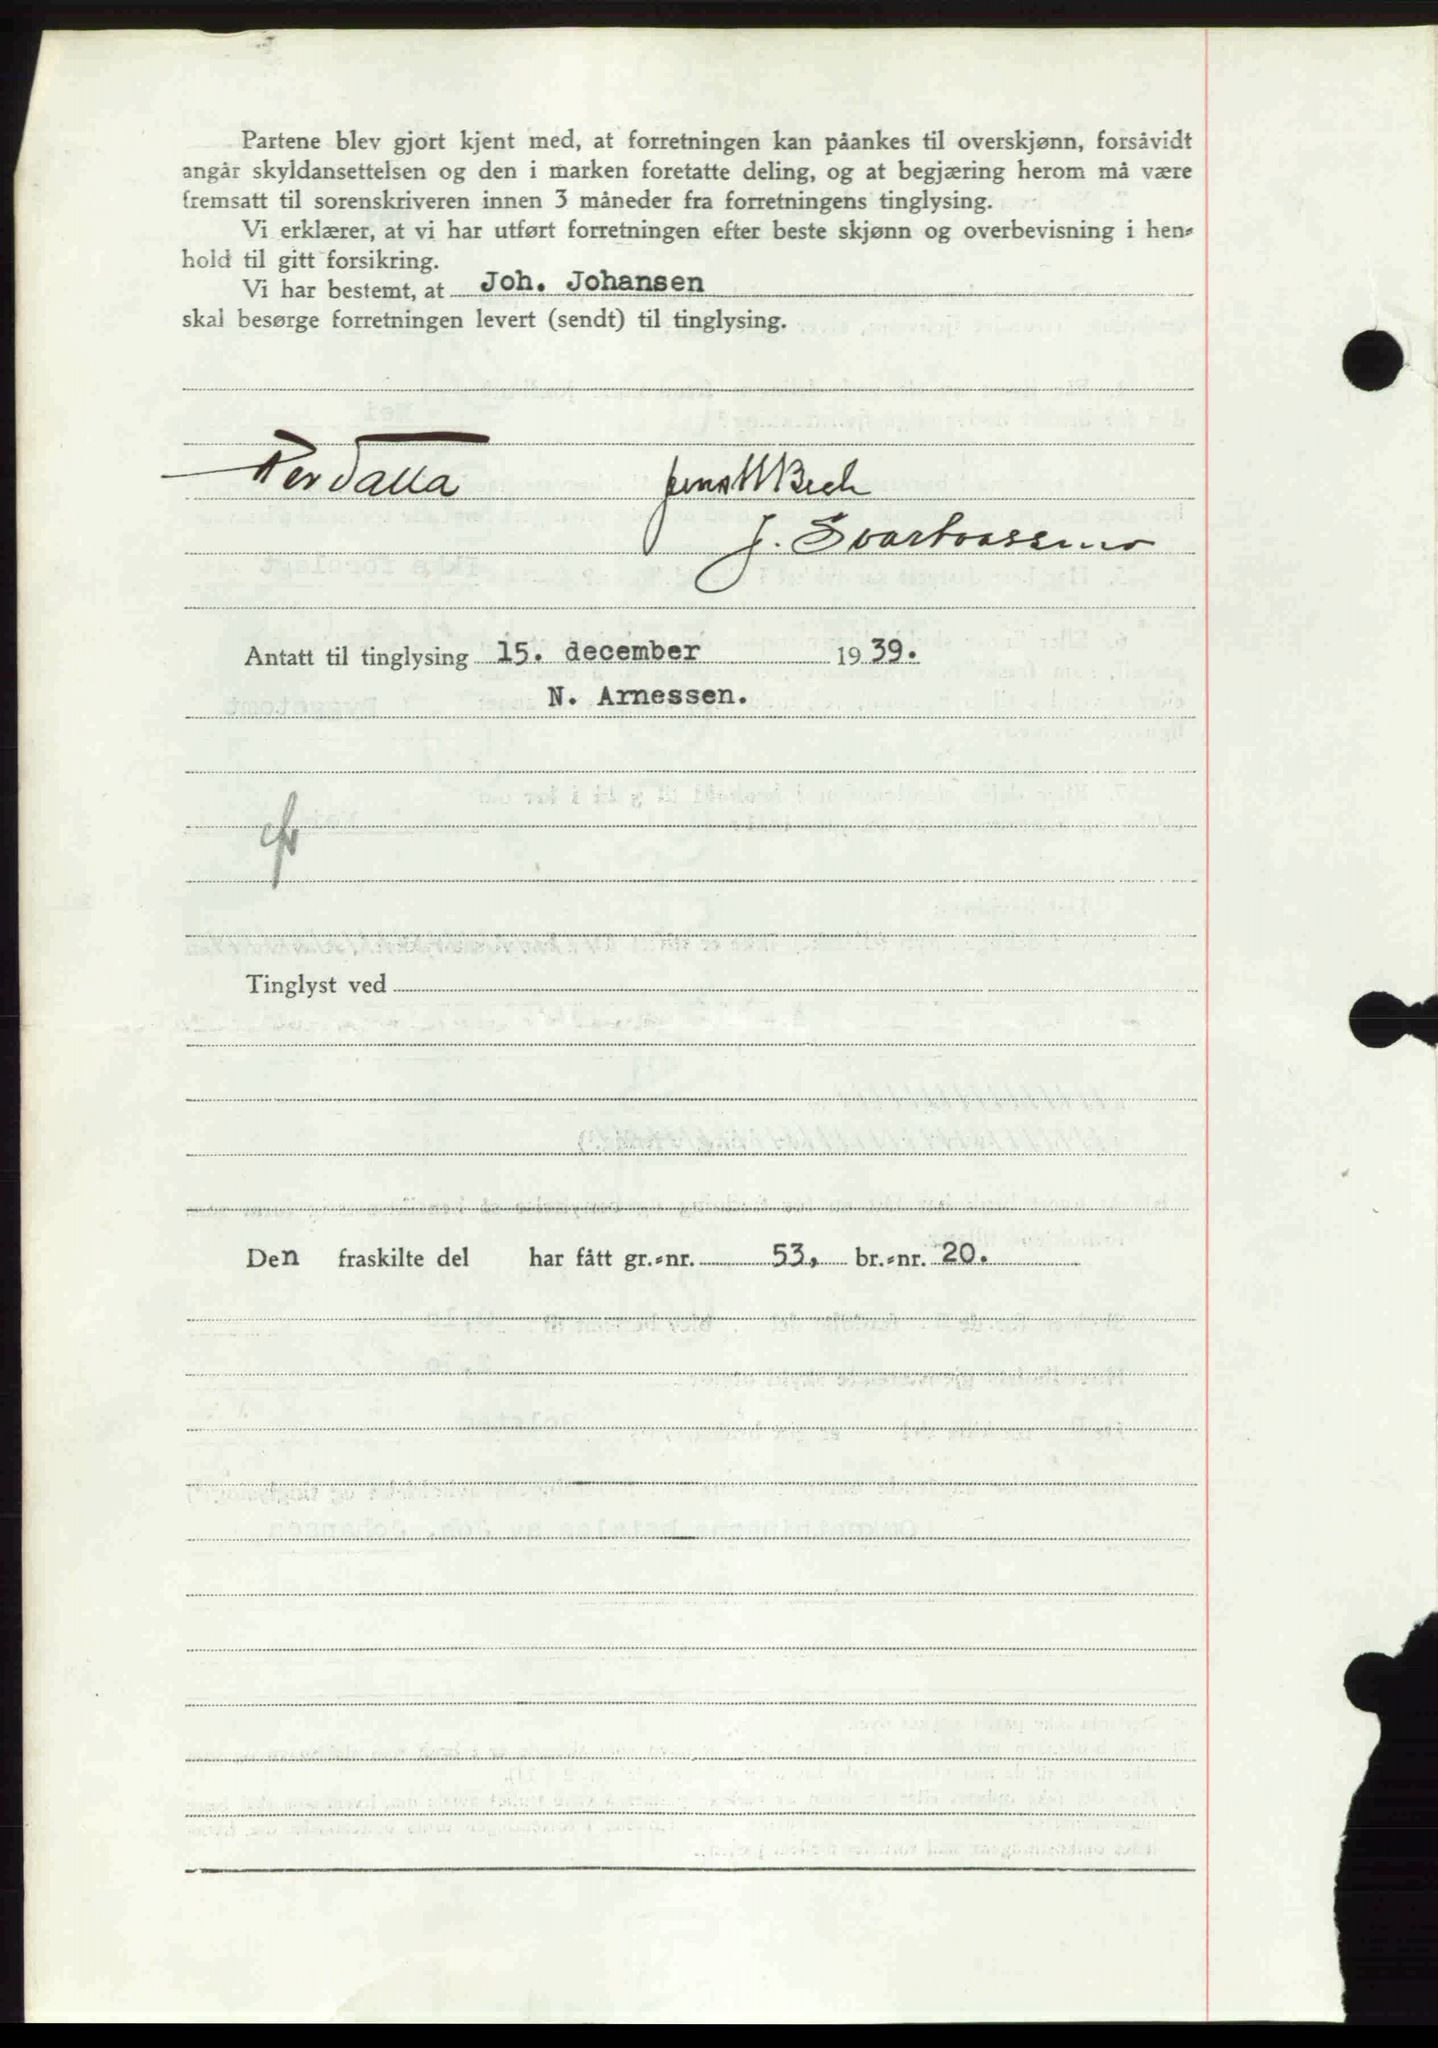 Partene blev gjort kjent med, at forretningen kan påankes til overskjønn, forsåvidt
angår skyldansettelsen og den i marken foretatte deling, og at begjæring herom må være
fremsatt til sorenskriveren innen 3 måneder fra forretningens tinglysing.
Vi erklærer, at vi har utført forretningen efter beste skjønn og overbevisning i hen-
hold til gitt forsikring.
Vi har bestemt, at Joh. Johansen
skal besørge forretningen levert (sendt) til tinglysing.
Per Jens W Bech
J. Svartvassmo
Antatt til tinglysing 15. december 1939.
N. Arnessen.
Tinglyst ved
Den fraskilte del har fått gr.-nr. 53, br.-nr. 20.